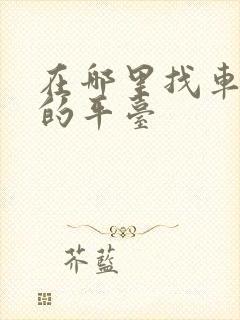 在哪里找車
的平臺
芥藍